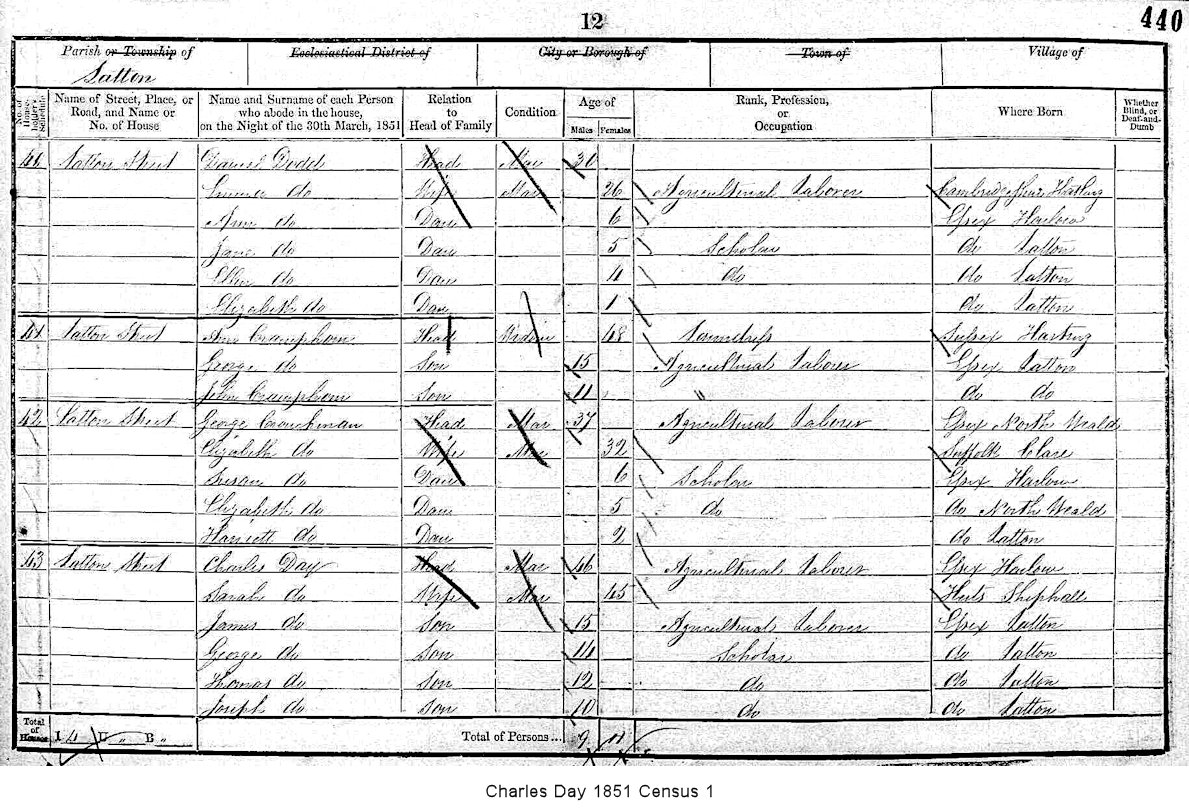 12
440
Parish or Township of
Ecclesiastical District of
City or Borough of
Town of
Village of
Latton
No. of House-holder's Schedule
Name of Street, Place, or Road, and Name or No. of House
Name and Surname of each Person who abode in the house, on the Night of the 30th March, 1851
Relation to Head of Family
Condition
Age of
Males Females
Rank, Profession, or Occupation
Where Born
Whether Blind, or Deaf-and-Dumb
Latton Street Daniel Dodd Head Mar 30
do Wife Mar 26 Agricultural Laborer Cambridge
Ann do Dau 6 Essex Harlow
Jane do Dau 5 Scholar do Latton
Ellen do Dau 4 do do Latton
Elizabeth do Dau 1 do Latton
41 Latton Street Ann Head Widow 48 Laundress Sussex Harting
George do Son 15 Agricultural Laborer Essex Latton
John Son 11 " do do
42 Latton Street George Head Mar 37 Agricultural Laborer Essex North Weald
Elizabeth do Wife Mar 32 Suffolk Clare
Susan do Dau 6 Scholar Essex Harlow
Elizabeth do Dau 5 do do North Weald
Harriett do Dau 2 do Latton
43 Latton Street Charles Day Head Mar 46 Agricultural Laborer Essex Harlow
Sarah do Wife Mar 45 Herts Shephall
James do Son 15 Agricultural Laborer Essex Latton
George do Son 14 Scholar do Latton
Thomas do Son 12 do do Latton
Joseph do Son 10 do do Latton
Total of Houses I 4 U " B " Total of Persons... 9 11
Charles Day 1851 Census 1